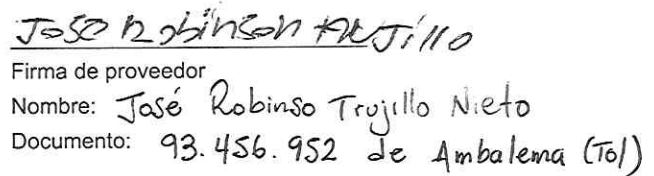 Jose Robinson Trujillo
Firma de proveedor
Nombre: José Robinso Trujillo Nieto
Documento: 93.456.952 de Ambalema (Tol)